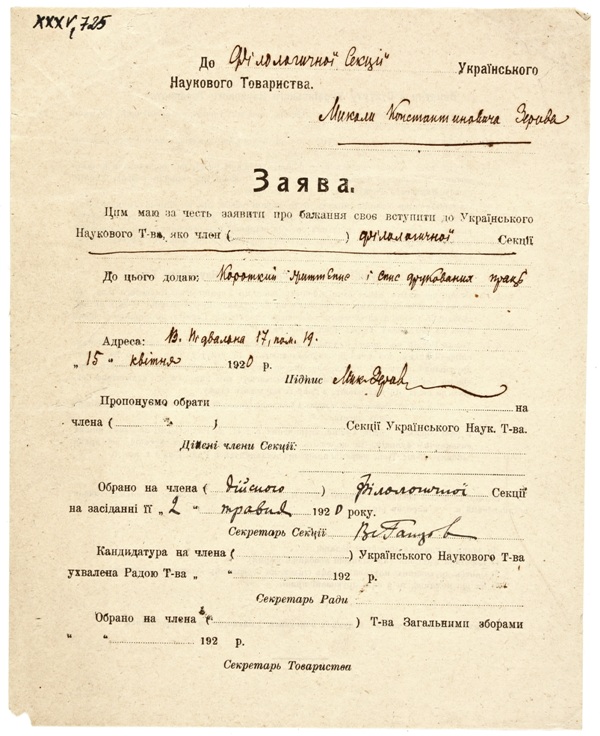 XXXV, 725
До Філологичної Секції Українського
Наукового Товариства.
Миколи Константиновича Зерова
Заява.
Цим маю за честь заявити про бажання своє вступити до Українського
Наукового Т-ва, яко член ( ) філологичної Секції
До цього додаю: Короткий життєпис і спис друкованих праць
Адреса: В. Підвальна 17, пом. 19.
„ 15 " квітня 1920 р.
Підпис Мик. Зеров
Пропонуємо обрати на
члена ( ) Секції Українського Наук. Т-ва.
Дійсні члени Секції:
Обрано на члена ( дійсного ) філологичної Секції
на засіданні її „ 2 " травня 1920 року.
Секретарь Секції Вс Ганцов
Кандидатура на члена ( ) Українського Наукового Т-ва
ухвалена Радою Т-ва „ " 192 р.
Секретарь Ради
Обрано на члена ( ) Т-ва Загальними зборами
„ " 192 р.
Секретарь Товариства